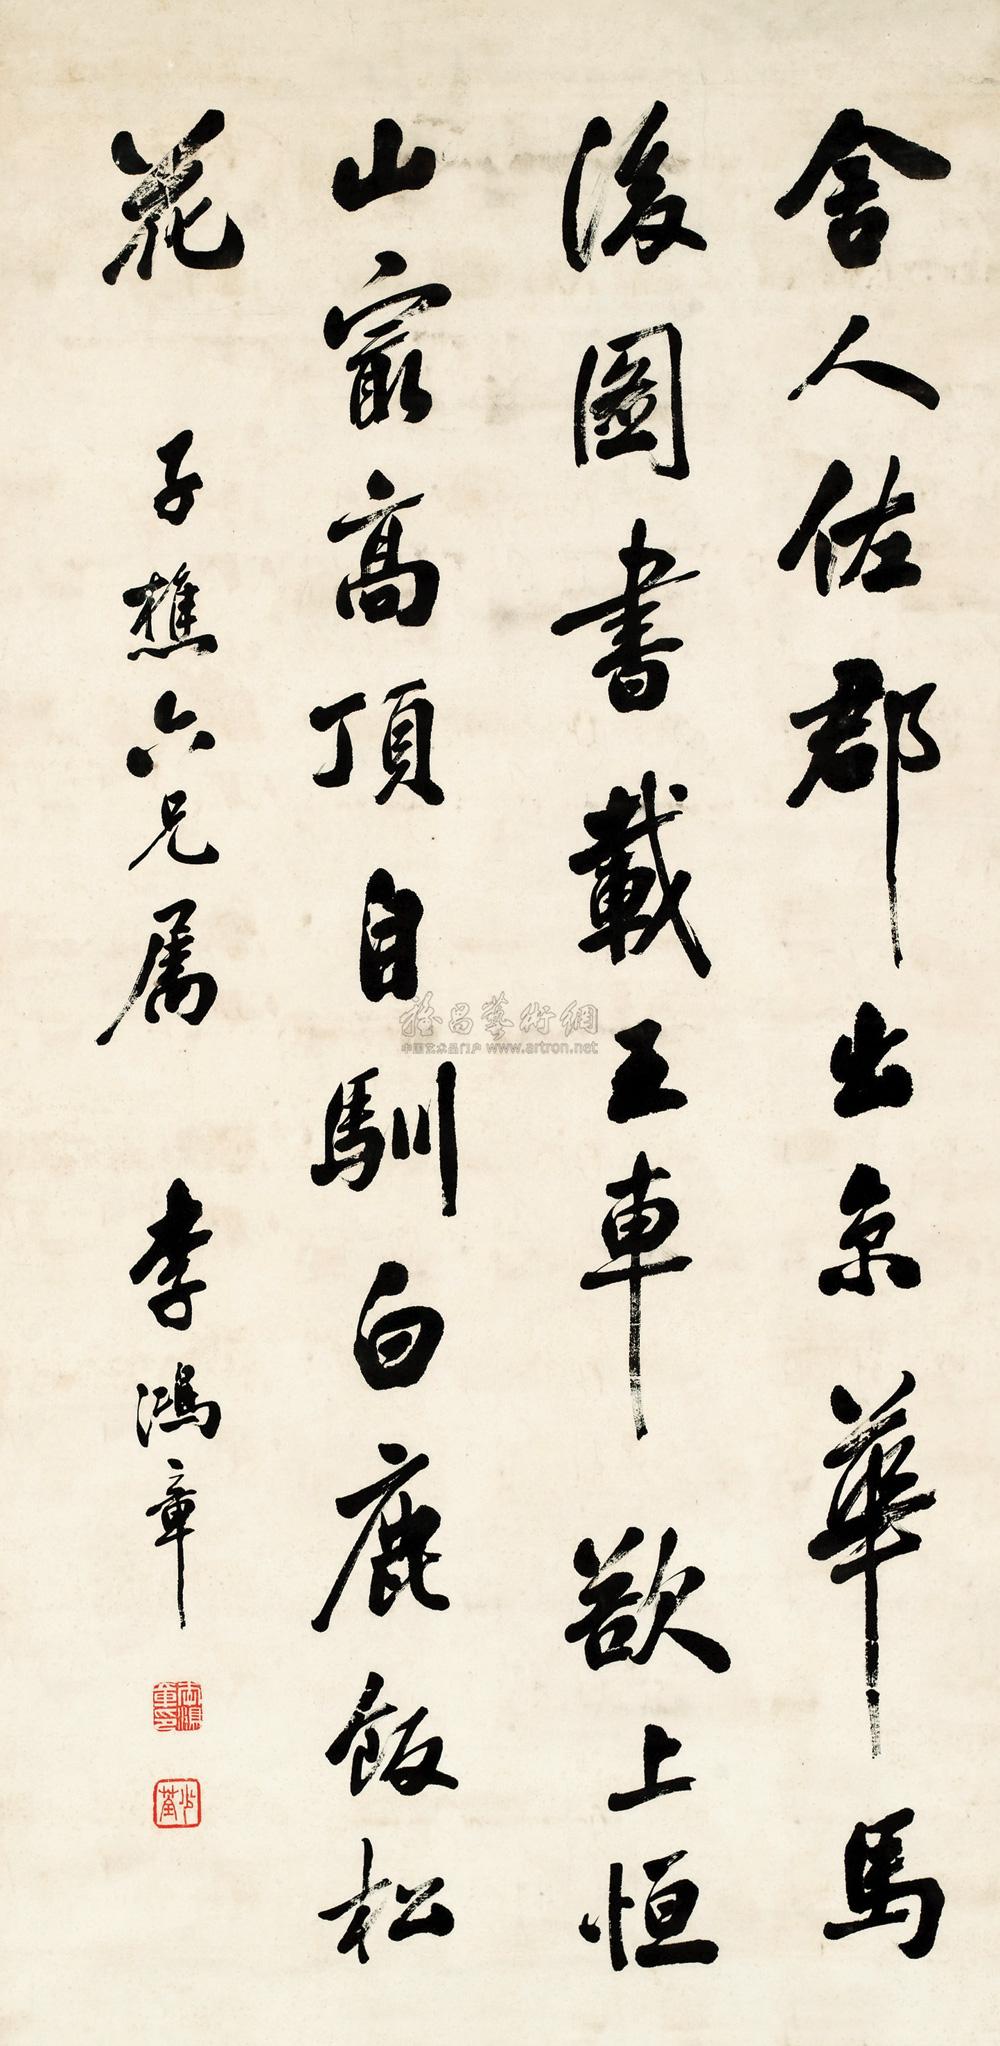 舍人佐郡出京華馬
後圖書載五車欲上恒
山最高頂自馴白鹿飯松
花
子樵六兄属 李鴻章
李鴻章印
少荃
雅昌藝術網
中国艺术品门户 www.artron.net